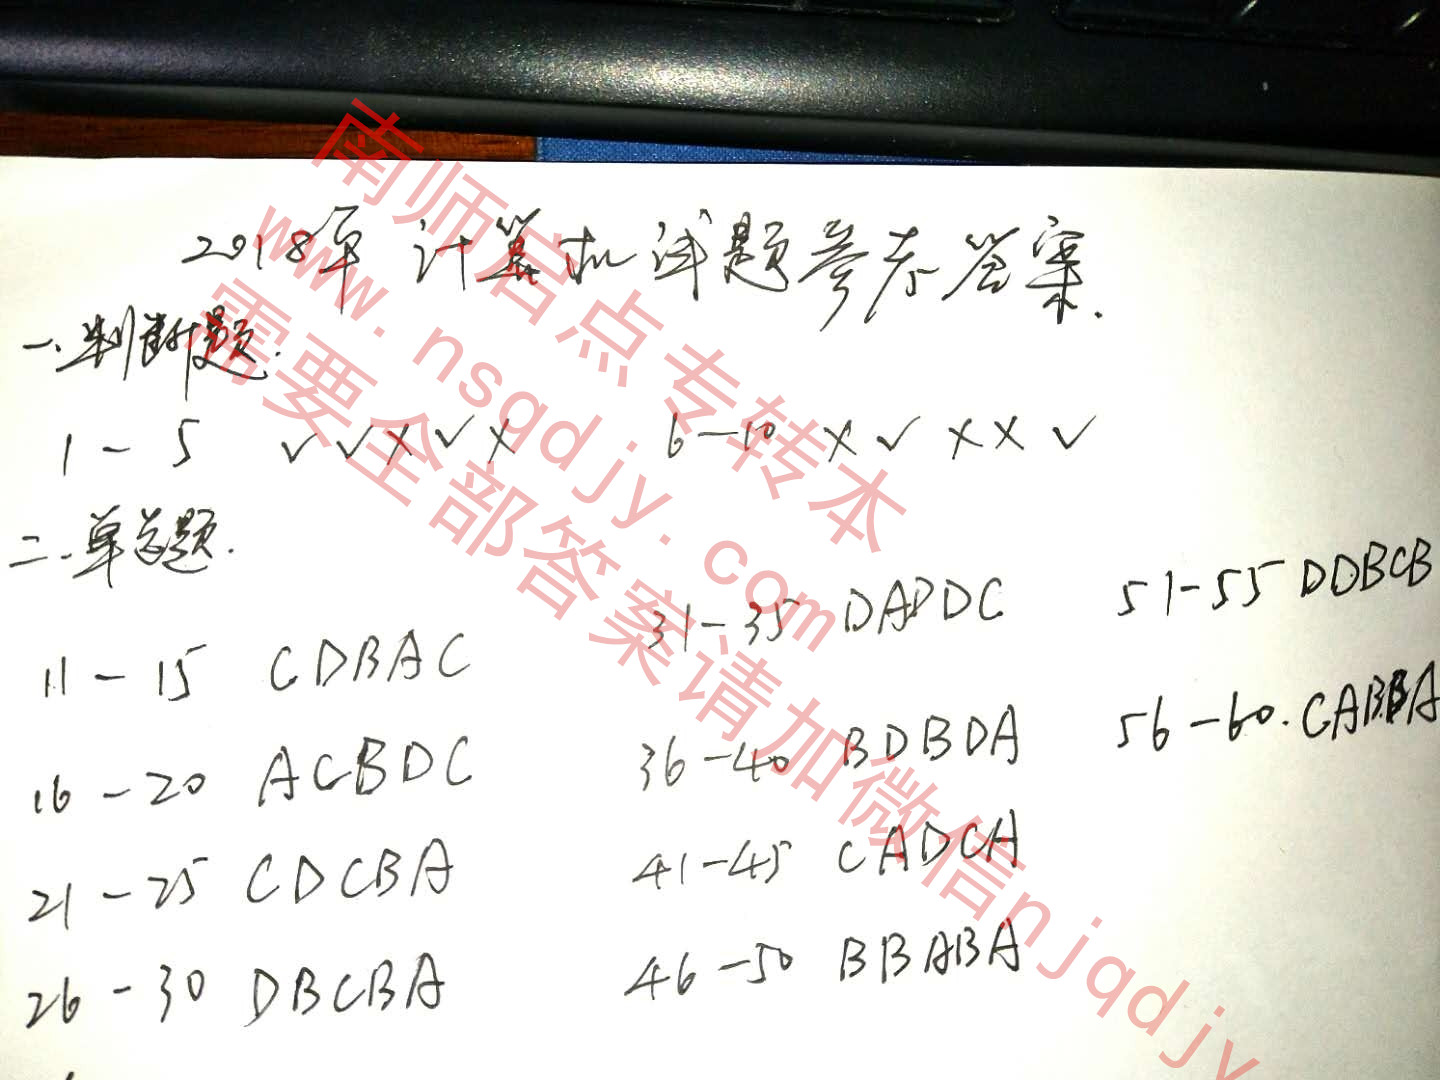 2018年计算机试题参考答案.
一、判断题.
1-5 ✓✓×✓× 6-10 ×✓××✓
二、单选题.
11-15 CDBAC
16-20 ACBDC
21-25 CDCBA
26-30 DBCBA
31-35 DADDC
36-40 BDBDA
41-45 CADCA
46-50 BBABA
51-55 DDBCB
56-60. CABBA
南师启点专转本
www.nsqdjy.com
需要全部答案请加微信njqdjy